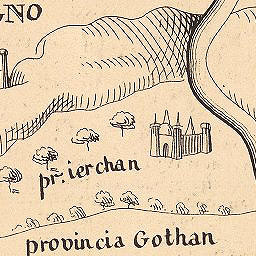 GNO
pr. ierchan
provincia Gothan